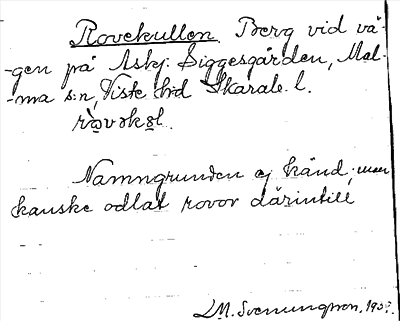 Rovekullen. Berg vid vä-
-gen på Asky: Siggesgården, Mal-
-ma s:n, Viste hd Skarab. l.
Namngrunden ej känd; man
kanske odlat rovor därintill
L.M. Svenungsson,